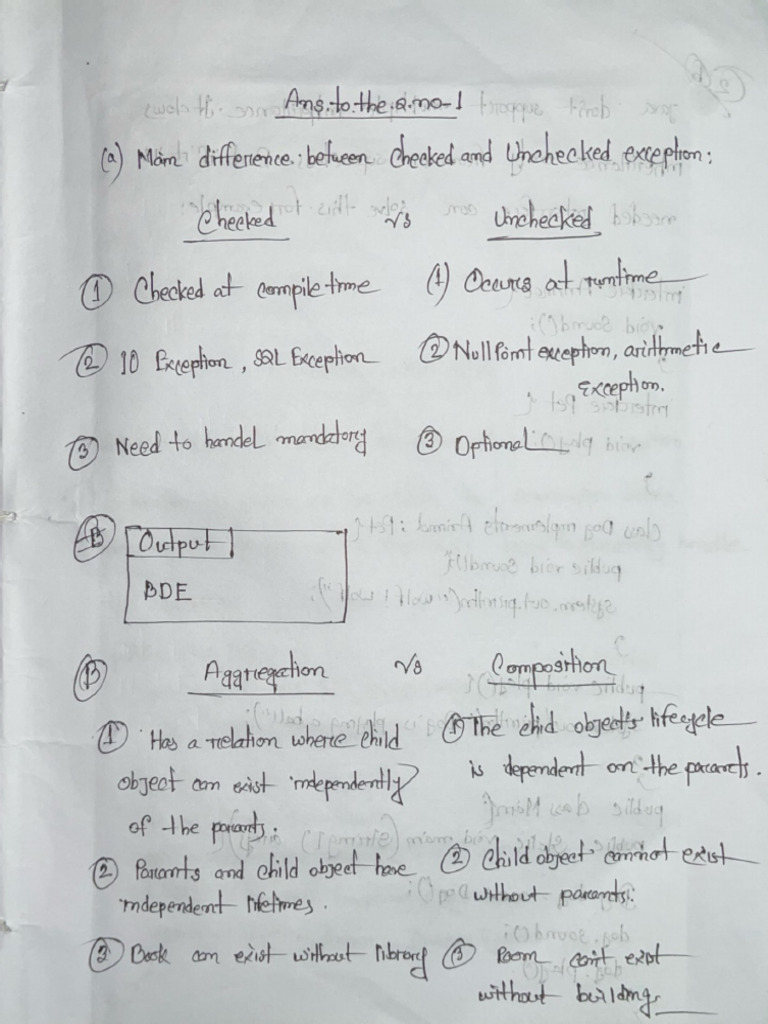 Ans.to.the.Q.no-1
(a) Main difference: between checked and Unchecked exception:
Checked vs Unchecked
① Checked at compile time (1) Occurs at runtime
② IO Exception, SQL Exception ② NullPoint exception, arithmetic
Exception.
③ Need to handel mandatory ③ Optional
B Output
BDE
B Aggregation vs Composition
① Has a relation where child ① The chid object's lifecycle
object can exist independently is dependent on the parants.
of the parants.
② Parants and child object have ② Child object cannot exist
independent lifetimes. without parants.
③ Book can exist without library ③ Room can't exist
without building